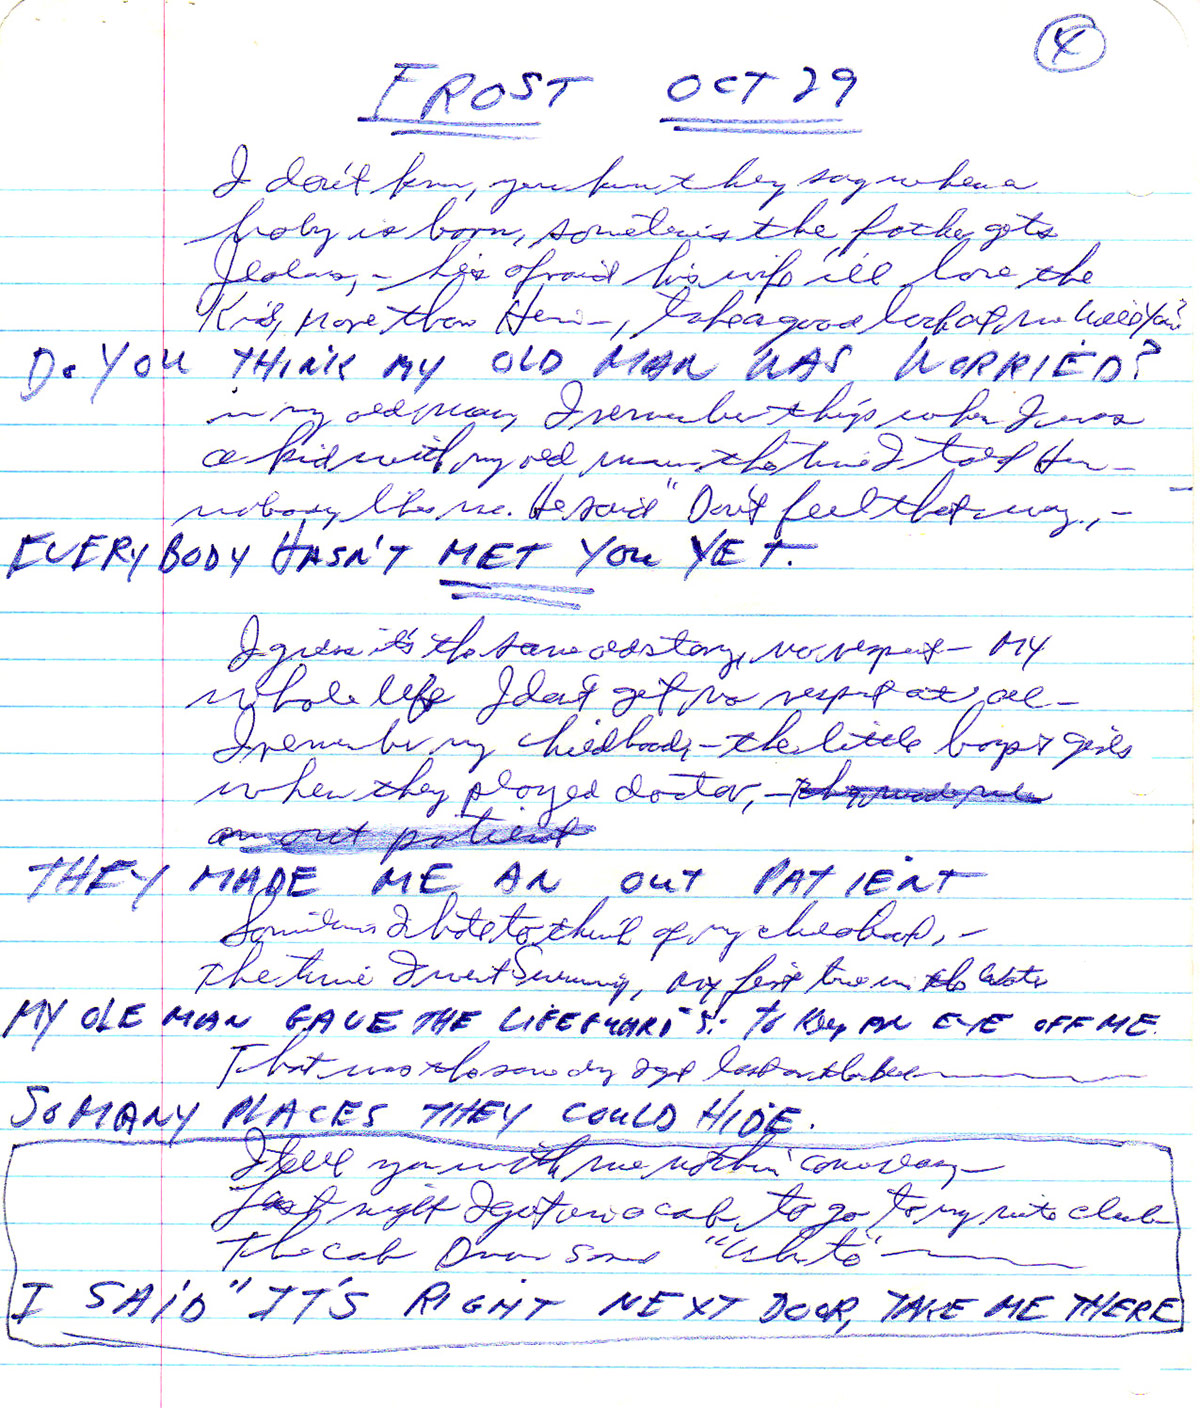 4
FROST OCT 29
I don't know, you know they say when a
baby is born, sometimes the father gets
Jealous, - he's afraid his wife 'ill love the
Kid, more than Him -, take a good look at me will you?
Do YOU THINK MY OLD MAN WAS WORRIED?
in my old man, I remember things when I was
a kid with my old man the time I told Him -
nobody likes me. He said "Don't feel that way, -
EVERYBODY HASN'T MET YOU YET.
I guess it's the same old story, no respect - MY
whole life I don't get no respect at all -
I remember my childhood, - the little boys & girls
when they played doctor, - they made me
an out patient
THEY MADE ME AN OUT PATIENT
Sometimes I hate to think of my childhood, -
the time I went Swimming, my first time in the water
MY OLE MAN GAVE THE LIFEGUARD $5. To Keep AN EYE OFF ME.
That was the same day I got lost on the beach
SO MANY PLACES THEY COULD HIDE.
I tell you with me nothin' comes easy -
Last night I got in a cab, to go to my nite club
The cab Driver said "Where to"
I SAID "IT'S RIGHT NEXT DOOR, TAKE ME THERE